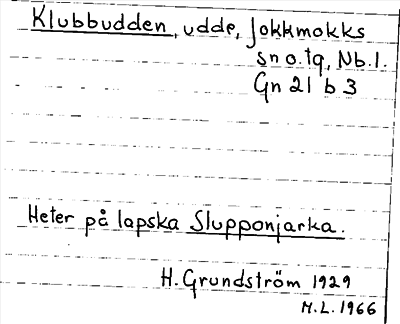 Klubbudden, udde, Jokkmokks
sn o. tg, Nb. l.
Gn 21 b 3
Heter på lapska Slupponjarka.
H. Grundström 1929
M.L. 1966